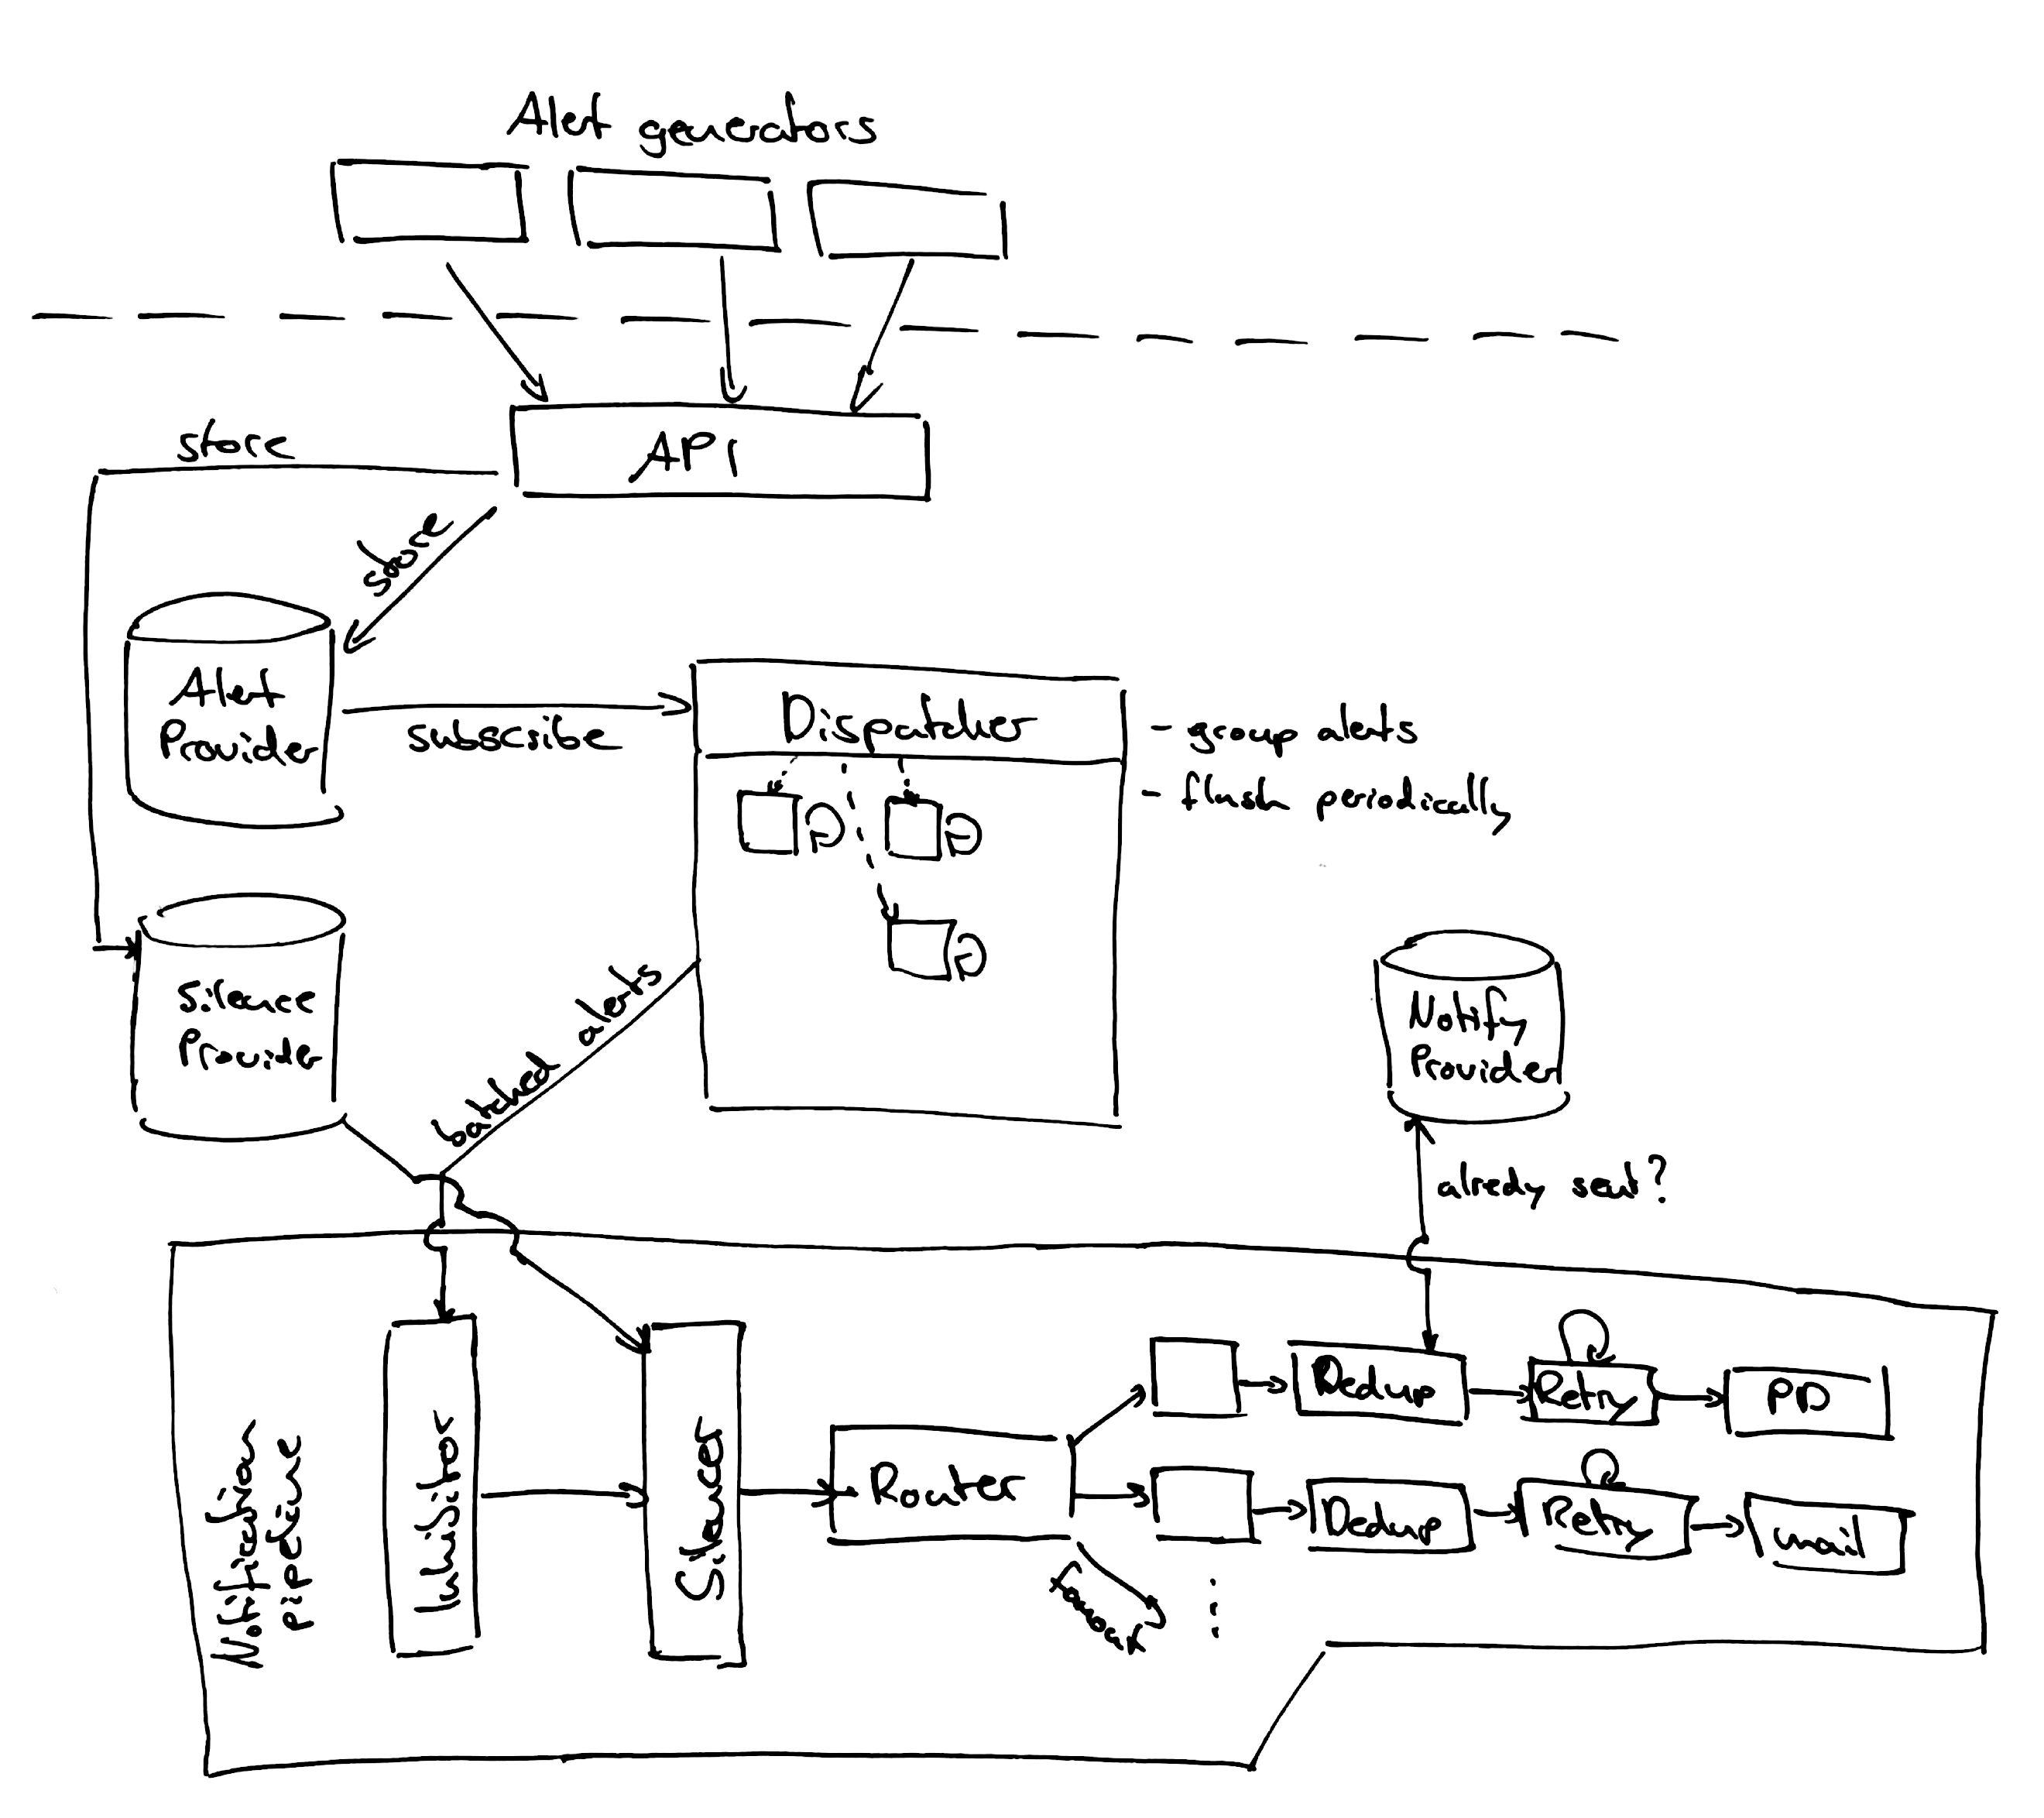 Alert generators
API
store
store
Alert
Provider
subscribe
Dispatcher
- group alerts
- flush periodically
Silence
Provider
batched alerts
Notify
Provider
alredy sent?
Notification
pipeline
Inhibitor
Silencer
Router
fanout
Dedup
Retry
PD
Dedup
Retry
mail